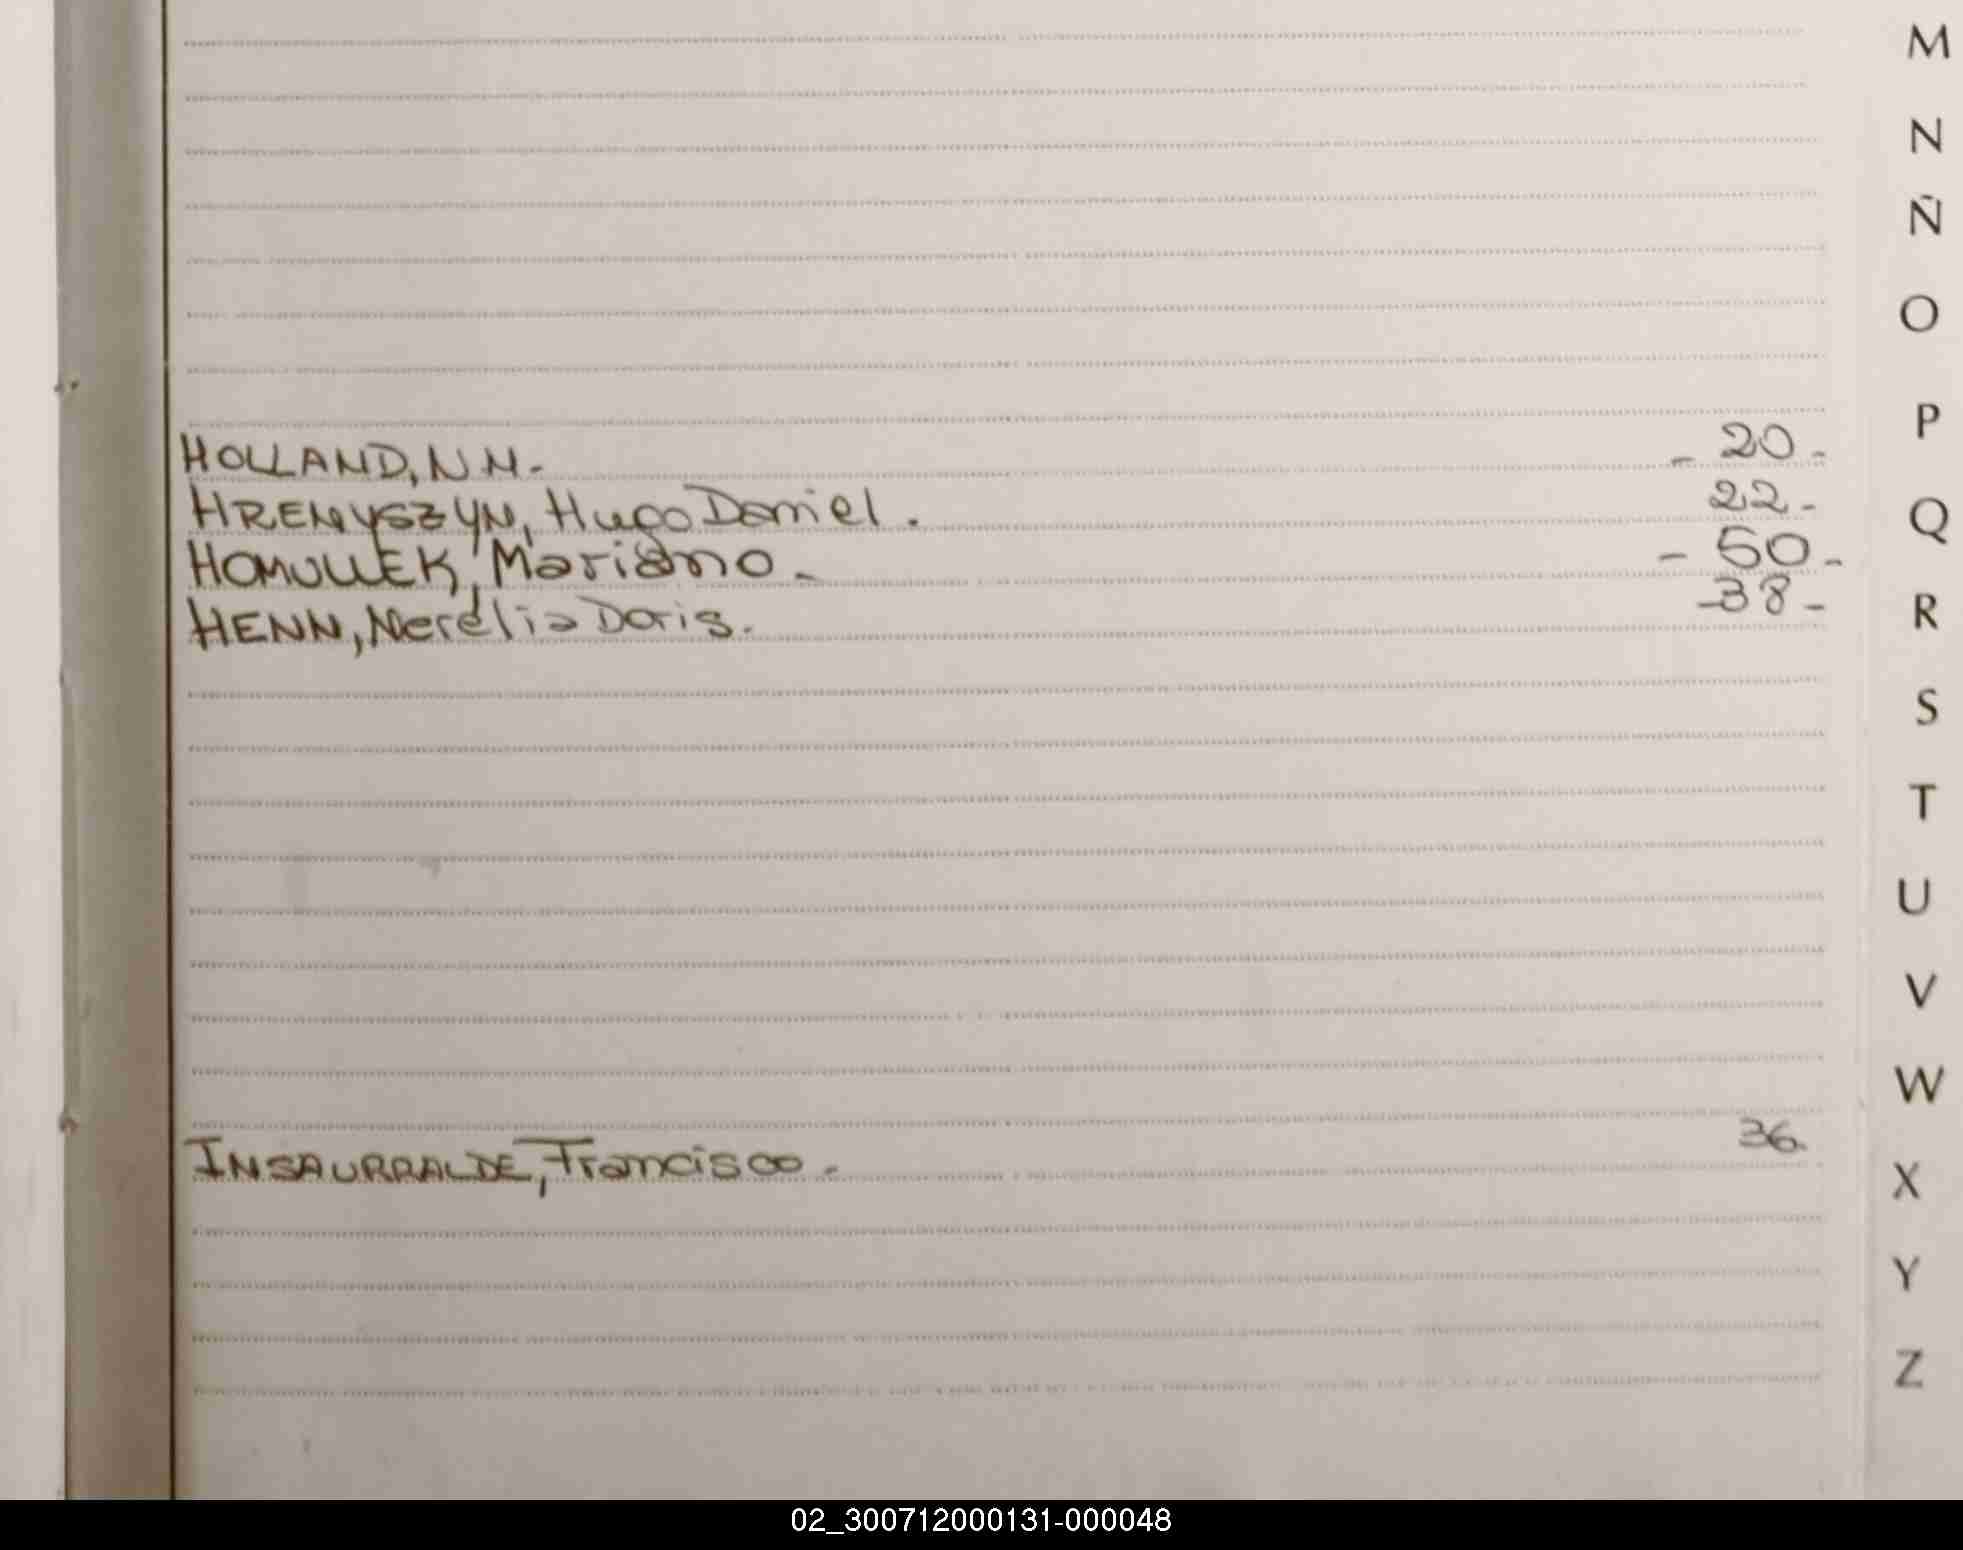 HOLLAND, N.N.- - 20 -
HRENYSZYN, Hugo Daniel. 22 -
HOMULLEK, Mariano. - - 50 -
HENN, Nerélia Doris. - 38 -
INSAURRALDE, Francisco. 36.
M
N
Ñ
O
P
Q
R
S
T
U
V
W
X
Y
Z
02_300712000131-000048